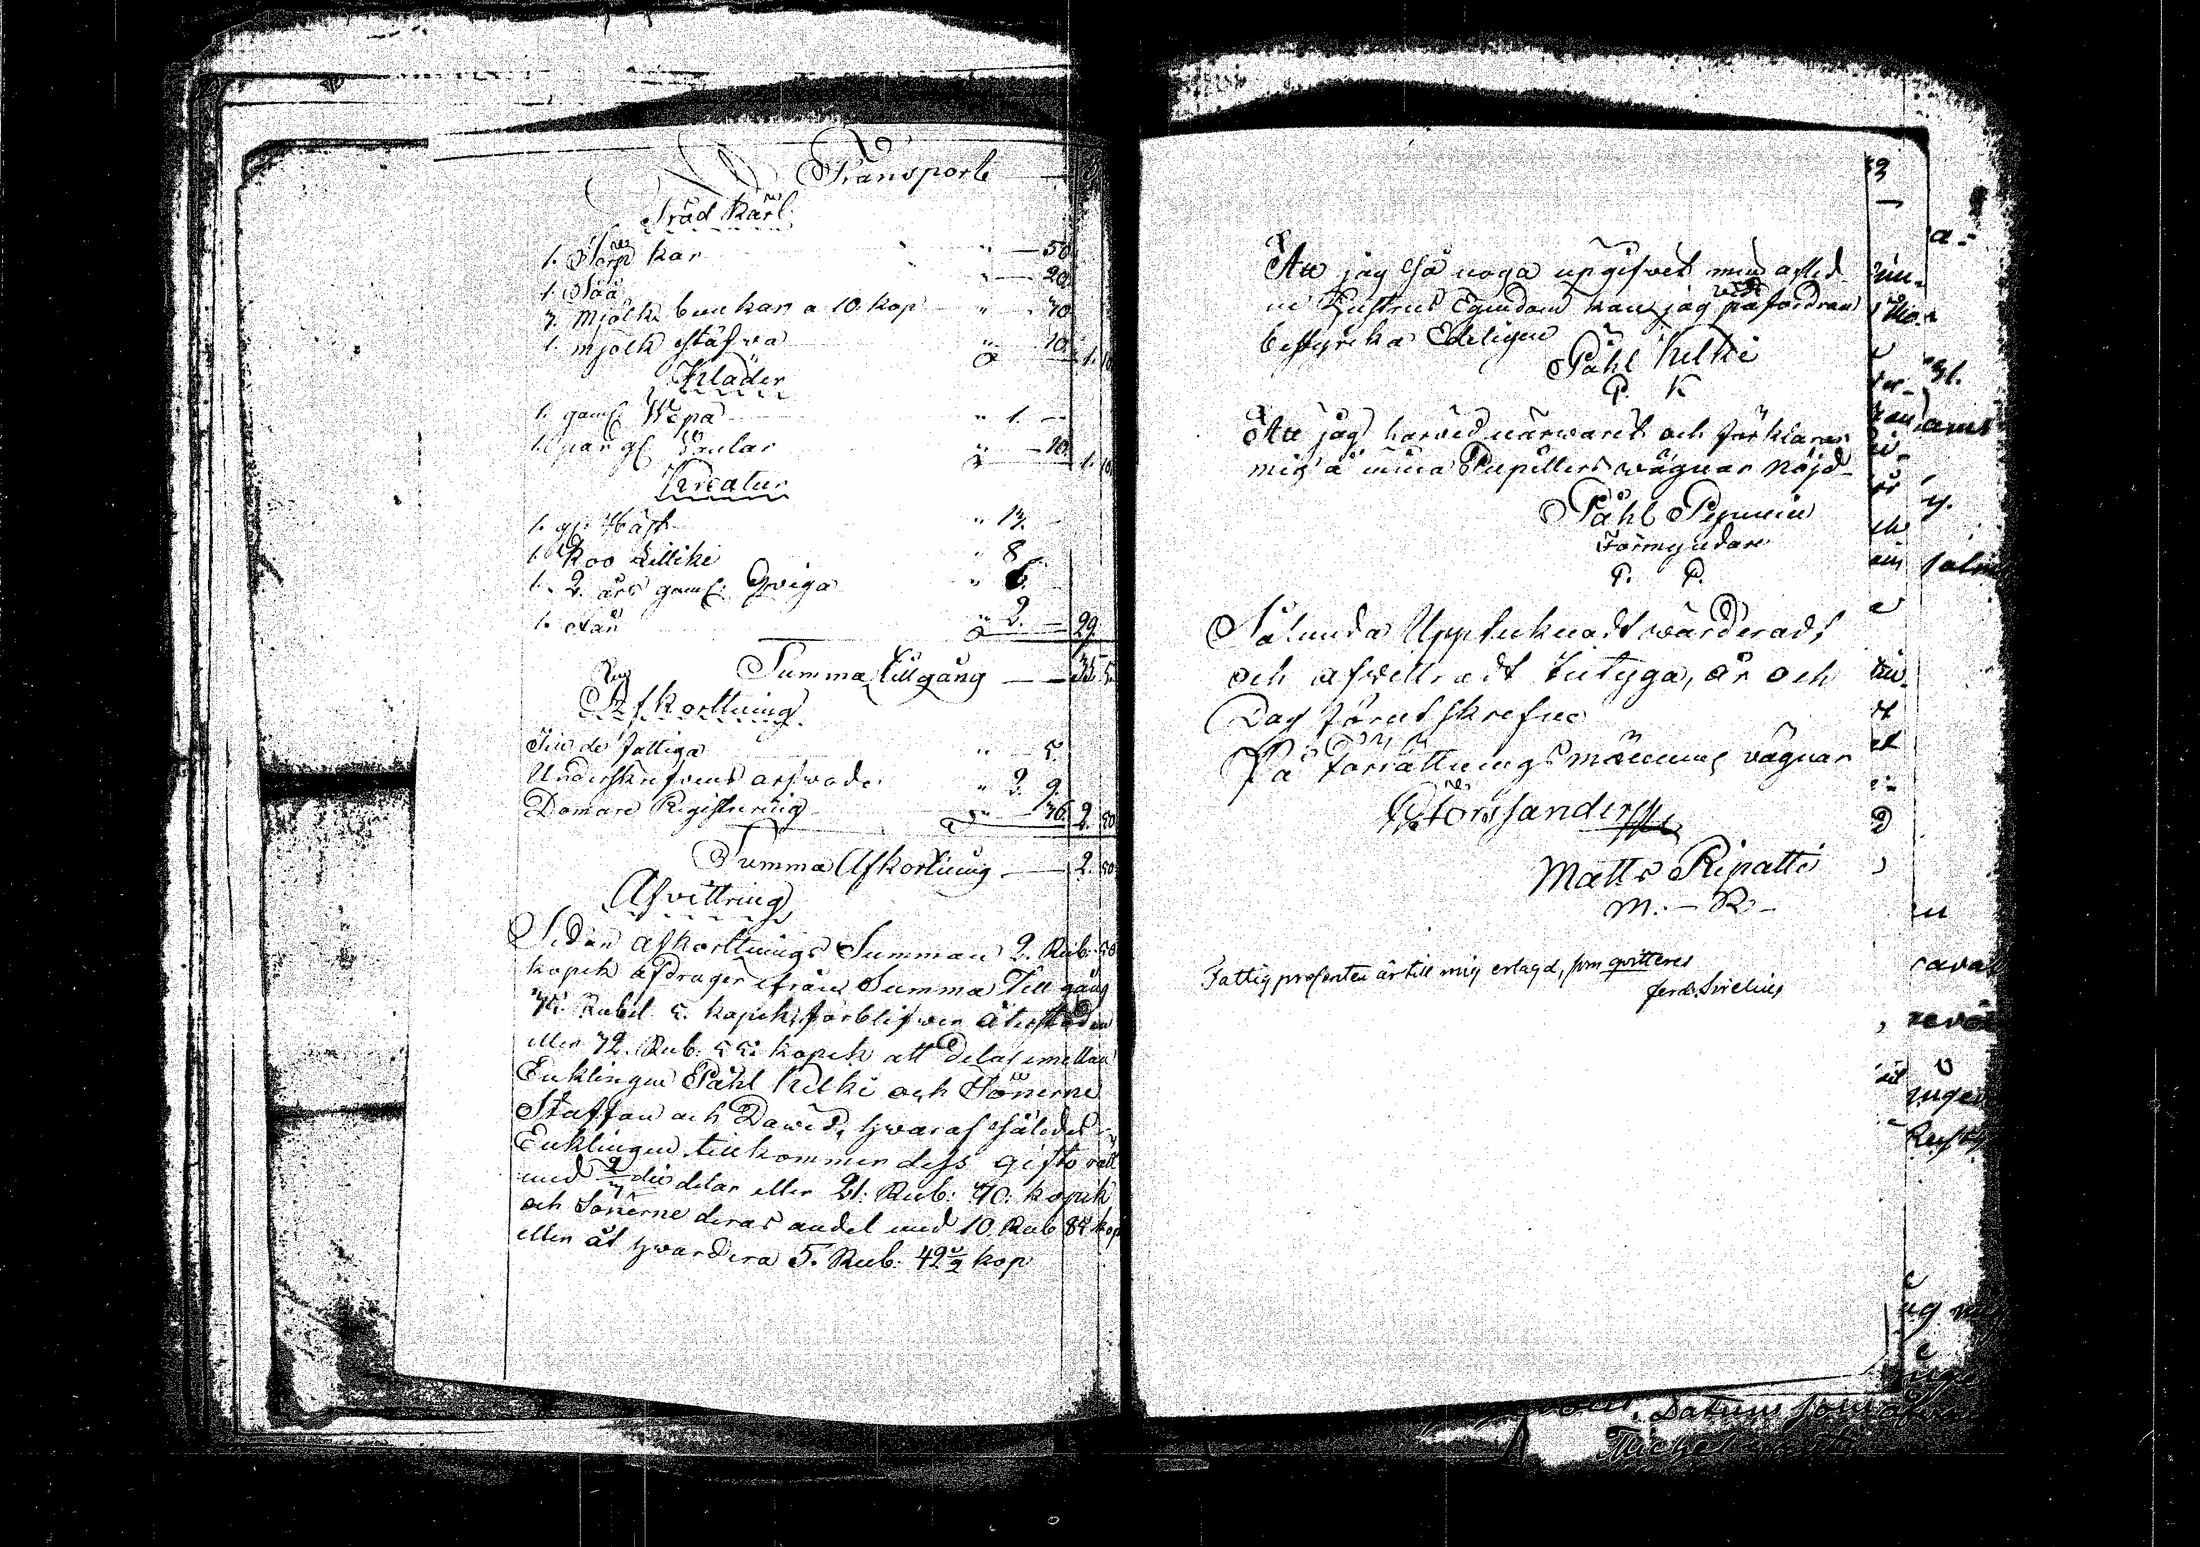 Transport
Träd Kärl
1. Kar — 50
1. Såå — 20
3. Mjölk bunkar a 10. kop " — 30
1. mjölk stäfwa " 10.
Kläder
1. gaml. Wepa " 1. —
1. par gl. — 10.
Kreatur
1. gl. Häst " 13.
1. Koo Lilliki " 8
1. 2. års gaml. Qwiga " 6.
1. Får " 2. — 29
Summa tillgång — 35. 5.
Afkorttning
Till de fattiga " — 5.
Underskrifvens arfwode " 2. 9.
Domare Registrering " — 36. 2. 50
Summa Afkorttning — 2. 50
Afvittring
Sedan Afkorttnings Summan 2. Rub: 50
kopek afdrages ifrån Summa Tillgång
35. Rubel 5. kopek, förblifwer Återstoden
eller 32. Rub. 55. kopek att delas emellan
Enklingen Påhl Kilki och Sönerne
Staffan och Dawid, hwaraf således
Enklingen tillkommer dess giftorätt
med 2/3 dels delar eller 21. Rub: 70. kopek
och Sönerne deras andel med 10. Rub 85 kop
eller åt hwardera 5. Rub. 42 1/2 kop
Att jag så noga upgifvet min aflid.
ne Hustrus Egendom kan jag påfordran
bestyrka Edeligen
Påhl Kilki
P. K
Att jag härvid närwarit och förklarar
mig å mina Pupillers wägnar nöjd
Påhl
Förmyndare
P. P.
Sålunda Upptecknadt wärderadt
och afvittradt intyga, år och
Dag förut skrefne
På Förrättningsmännens vägnar
Forssander
Matts Ripatti
M. — R. —
Fattigprocenten är till mig erlagd, som qvitteres
Ferd. Sirelius